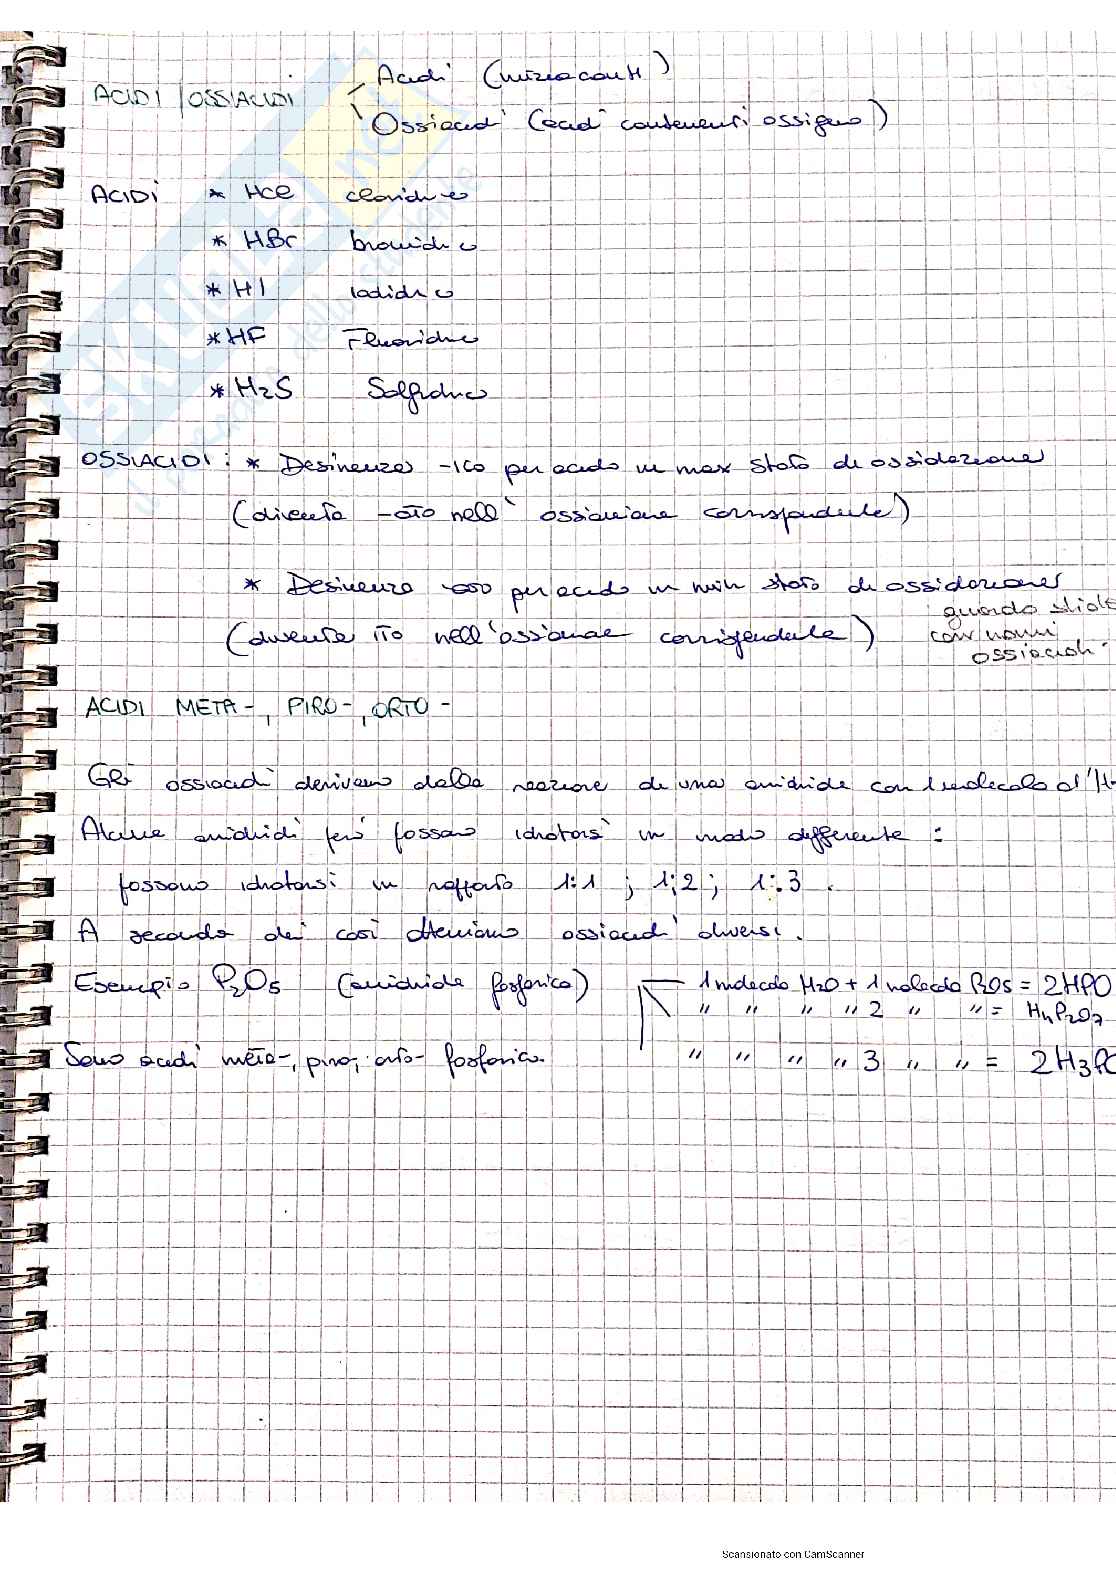 ACIDI / OSSIACIDI
Acidi (inizia con H)
Ossiacidi (acidi contenenti ossigeno)
ACIDI * HCl cloridrico
* HBr bromidrico
* HI iodidrico
* HF Fluoridrico
* H2S Solfidrico
OSSIACIDI: * Desinenza -ICO per acido in max stato di ossidazione
(diventa -ATO nell' ossianione corrispondente)
* Desinenza -OSO per acido in min stato di ossidazione
(diventa ITO nell'ossianione corrispondente)
guarda slide
con nomi
ossiacidi.
ACIDI META-, PIRO-, ORTO-
Gli ossiacidi derivano dalla reazione di una anidride con 1 molecola d'H
Alcune anidridi però possono idratarsi in modo differente:
possono idratarsi in rapporto 1:1 ; 1:2 ; 1:3.
A seconda dei casi otteniamo ossiacidi diversi.
Esempio P2O5 (anidride fosforica)
1 molecola H2O + 1 molecola P2O5 = 2HPO
" " " " 2 " " = H4P2O7
" " " " 3 " " = 2H3PO
Sono acidi meta-, piro-, orto- fosforico.
SKUOLA.net
Scansionato con CamScanner